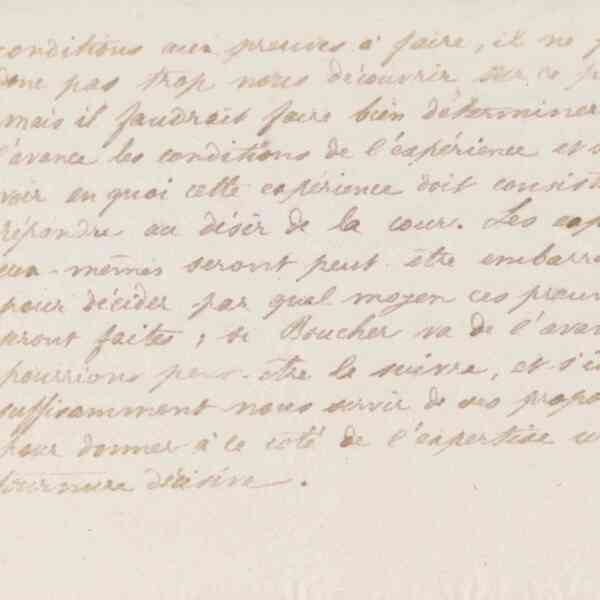 conditions aux preuves à faire, il ne f
donc pas trop nous découvrir sur ce p
mais il faudrait faire bien déterminer
l'avance les conditions de l'expérience et
voir en quoi cette expérience doit consist
répondre au désir de la cour. Les exp
eux-mêmes seront peut être embarra
pour décider par quel moyen ces preuv
seront faites; si Boucher va de l'avan
pourrions peut-être le suivre, et s'i
suffisamment nous servir de ses propo
pour donner à ce coté de l'expertise u
tournure décisive.